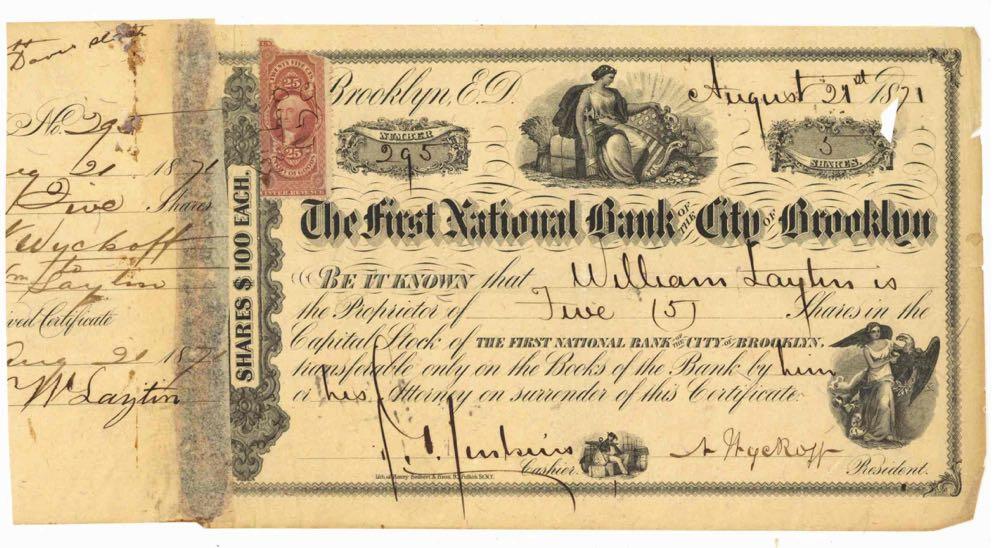 No. 295
Aug 21 1871
Five Shares
Wyckoff
to
Wm Laytin
Received Certificate
Aug 21 1871
Wm Laytin
SHARES $100 EACH.
25 25
INTER. REVENUE
Brooklyn, E.D. August 21st 1871
NUMBER
295
5
SHARES
The First National Bank OF THE City OF Brooklyn
BE IT KNOWN that William Laytin is
the Proprietor of Five (5) Shares in the
Capital Stock of THE FIRST NATIONAL BANK OF THE CITY OF BROOKLYN,
transferable only on the Books of the Bank by him
or his Attorney on surrender of this Certificate.
Jenkins Cashier.
N Wyckoff President.